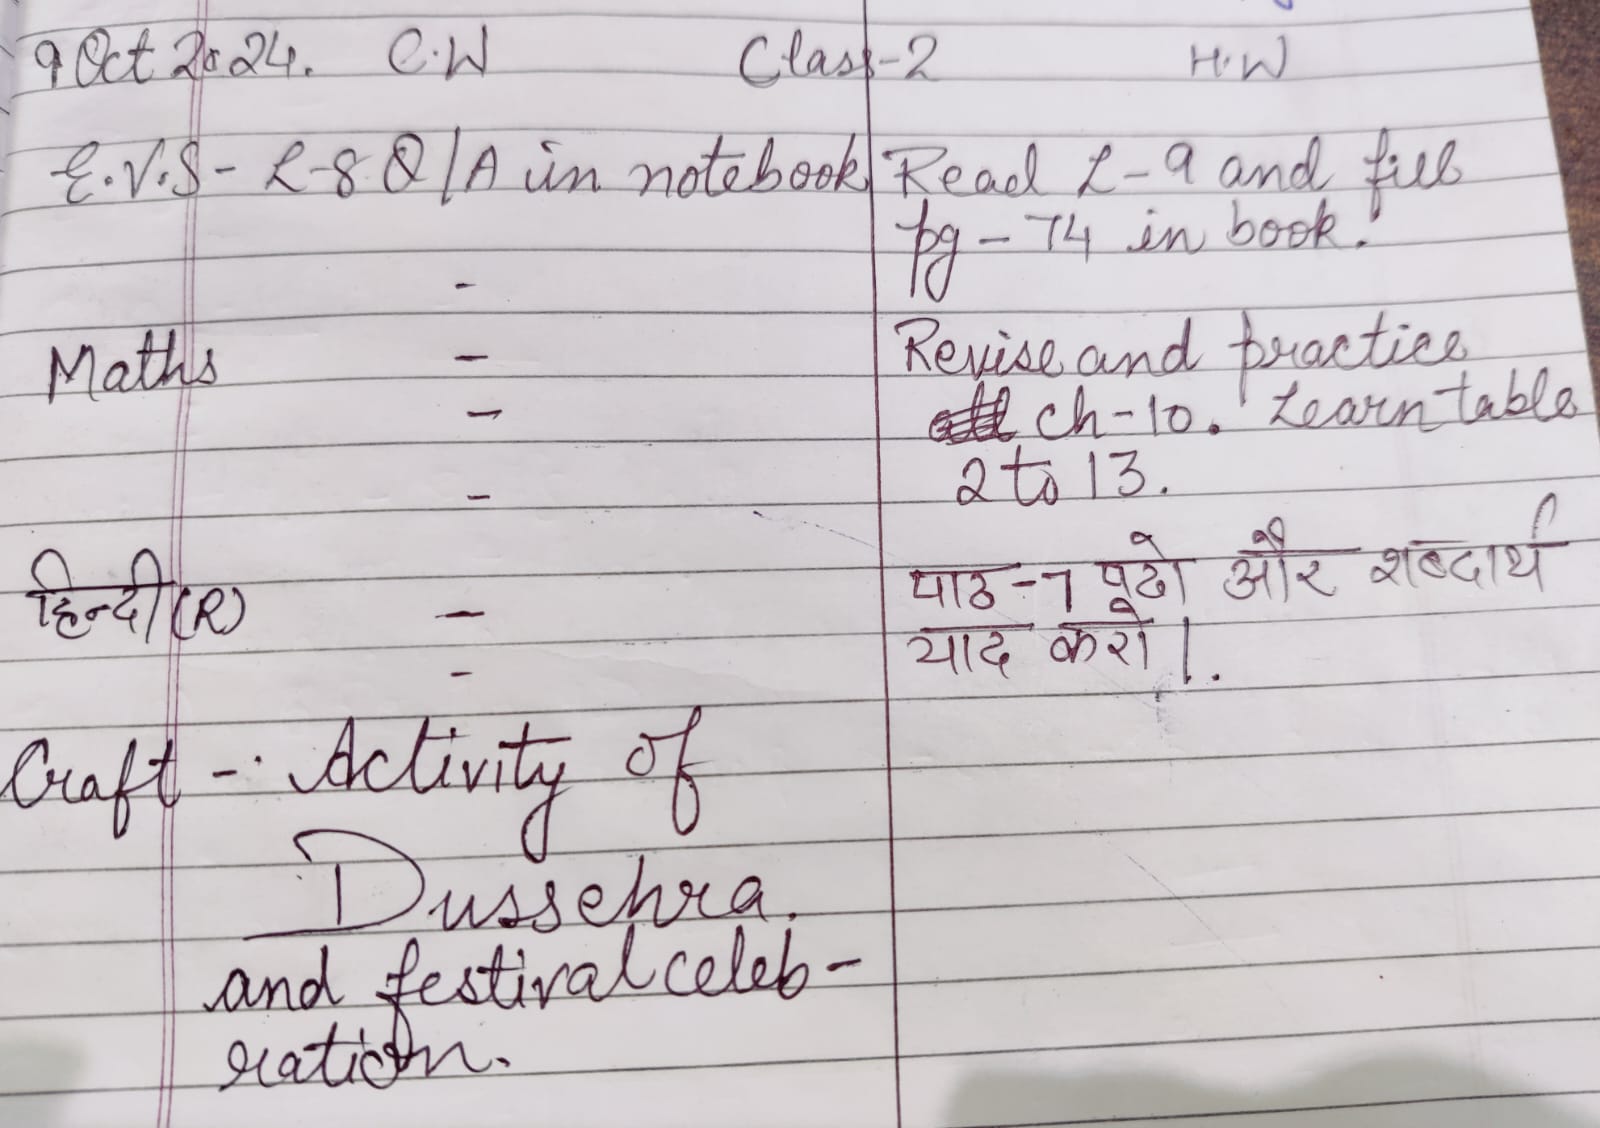 9 Oct 2024. C.W Class-2 H.W
E.V.S - L-8 Q/A in notebook Read L-9 and fill
pg - 74 in book.
-
Maths - Revise and practice
- ch-10. Learn table
- 2 to 13.
हिन्दी (R) - पाठ -7 पढो और शब्दार्थ
- याद करो।.
Craft -. Activity of
Dussehra.
and festival celeb-
ration.